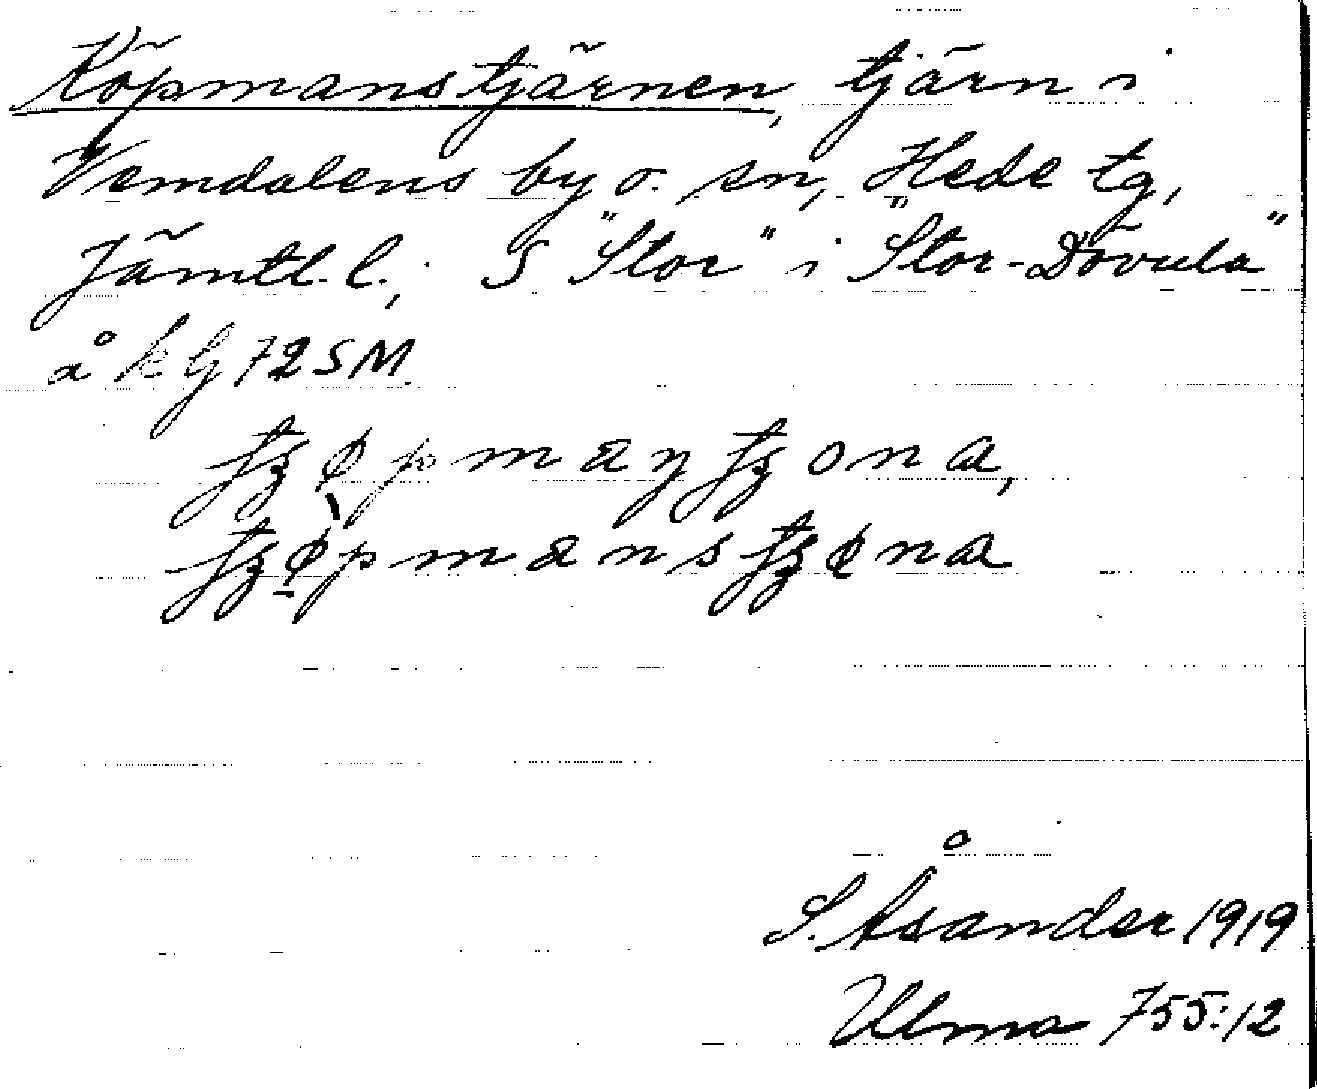 Köpmanstjärnen, tjärn i
Vemdalens by o. sn, Hede tg,
Jämtl. l.; S "Stor" i "Stor-Dövula"
å kbl 72 SM.
S. Åsander 1919
Ulma 755:12